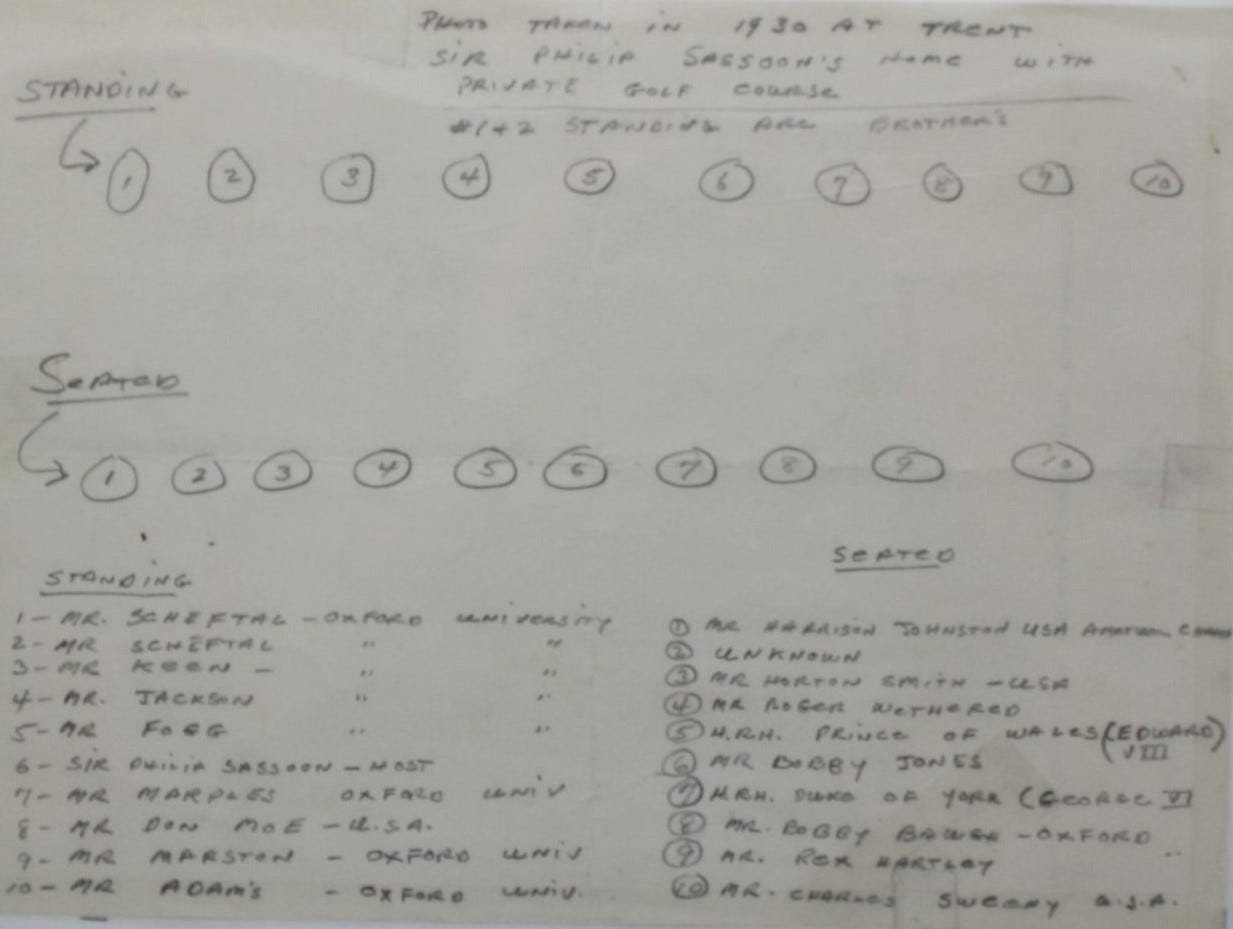 PHOTO TAKEN IN 1930 AT TRENT
SIR PHILIP SASSOON'S HOME WITH
PRIVATE GOLF COURSE
#1+2 STANDING ARE BROTHER'S
STANDING
1 2 3 4 5 6 7 8 9 10
SEATED
1 2 3 4 5 6 7 8 9 10
STANDING
1 - MR. SCHEFTAL - OXFORD UNIVERSITY
2 - MR SCHEFTAL " "
3 - MR KEEN - " "
4 - MR. JACKSON " "
5 - MR FOGG " "
6 - SIR PHILIP SASSOON - HOST
7 - MR MARPLES OXFORD UNIV
8 - MR DON MOE - U.S.A.
9 - MR MARSTON - OXFORD UNIV
10 - MR ADAM'S - OXFORD UNIV.
SEATED
1 MR HARRISON JOHNSTON USA AMATEUR
2 UNKNOWN
3 MR HORTON SMITH - USA
4 MR ROGER WETHERED
5 H.R.H. PRINCE OF WALES (EDWARD VIII)
6 MR BOBBY JONES
7 H.R.H. DUKE OF YORK (GEORGE VI
8 MR. BOBBY - OXFORD
9 MR. REX HARTLEY "
10 MR. CHARLES SWEENY U.S.A.